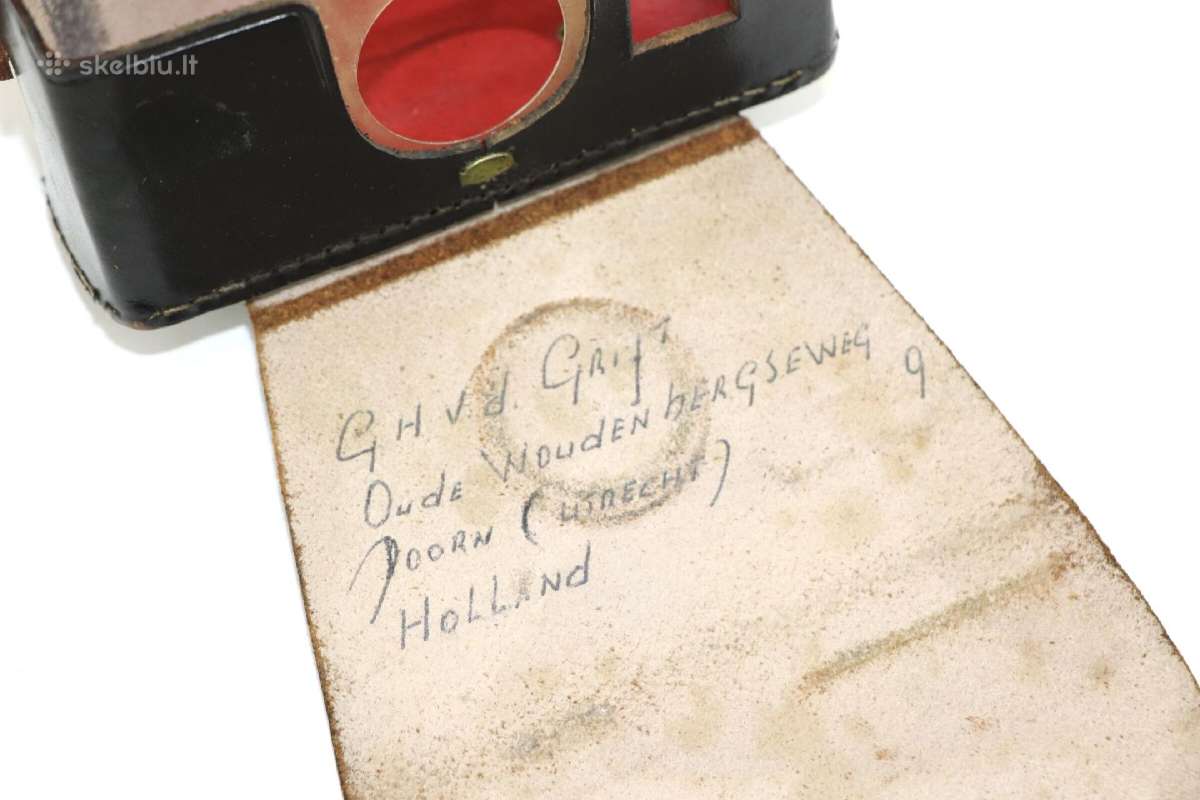 skelbiu.lt
GH v.d. Grift
Oude Woudenbergseweg 9
Doorn (utrecht)
Holland